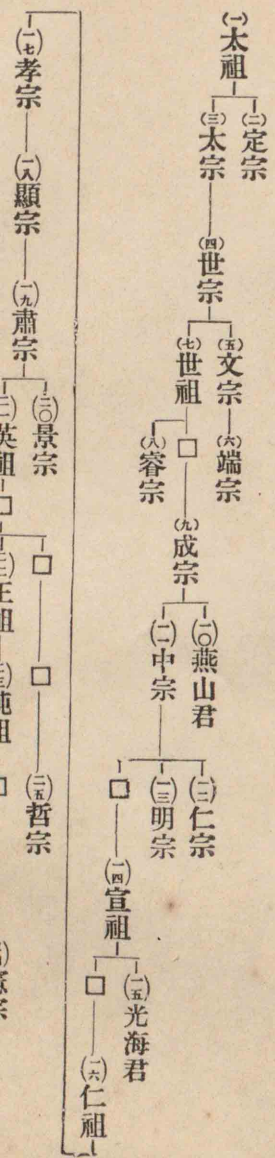 (一)太祖
(二)定宗
(三)太宗
(四)世宗
(五)文宗
(六)端宗
(七)世祖
(八)睿宗
(九)成宗
(一〇)燕山君
(一一)中宗
(一二)仁宗
(一三)明宗
(一四)宣祖
(一五)光海君
(一六)仁祖
(一七)孝宗
(一八)顯宗
(一九)肅宗
(二〇)景宗
英祖
正祖
純祖
(二五)哲宗
憲宗